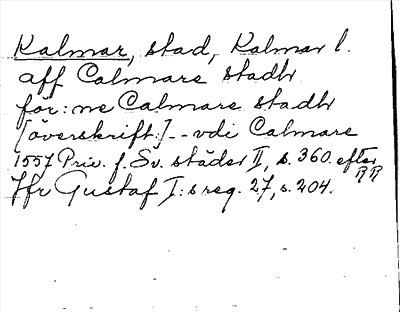 Kalmar, stad, Kalmar l.
aff Calmare stadh
för: ne Calmare stadh
[överskrift:] -- vdi Calmare
1557 Priv. f. Sv. städer II, s. 360. efter RR
Jfr Gustaf I:s reg. 27, s. 204.